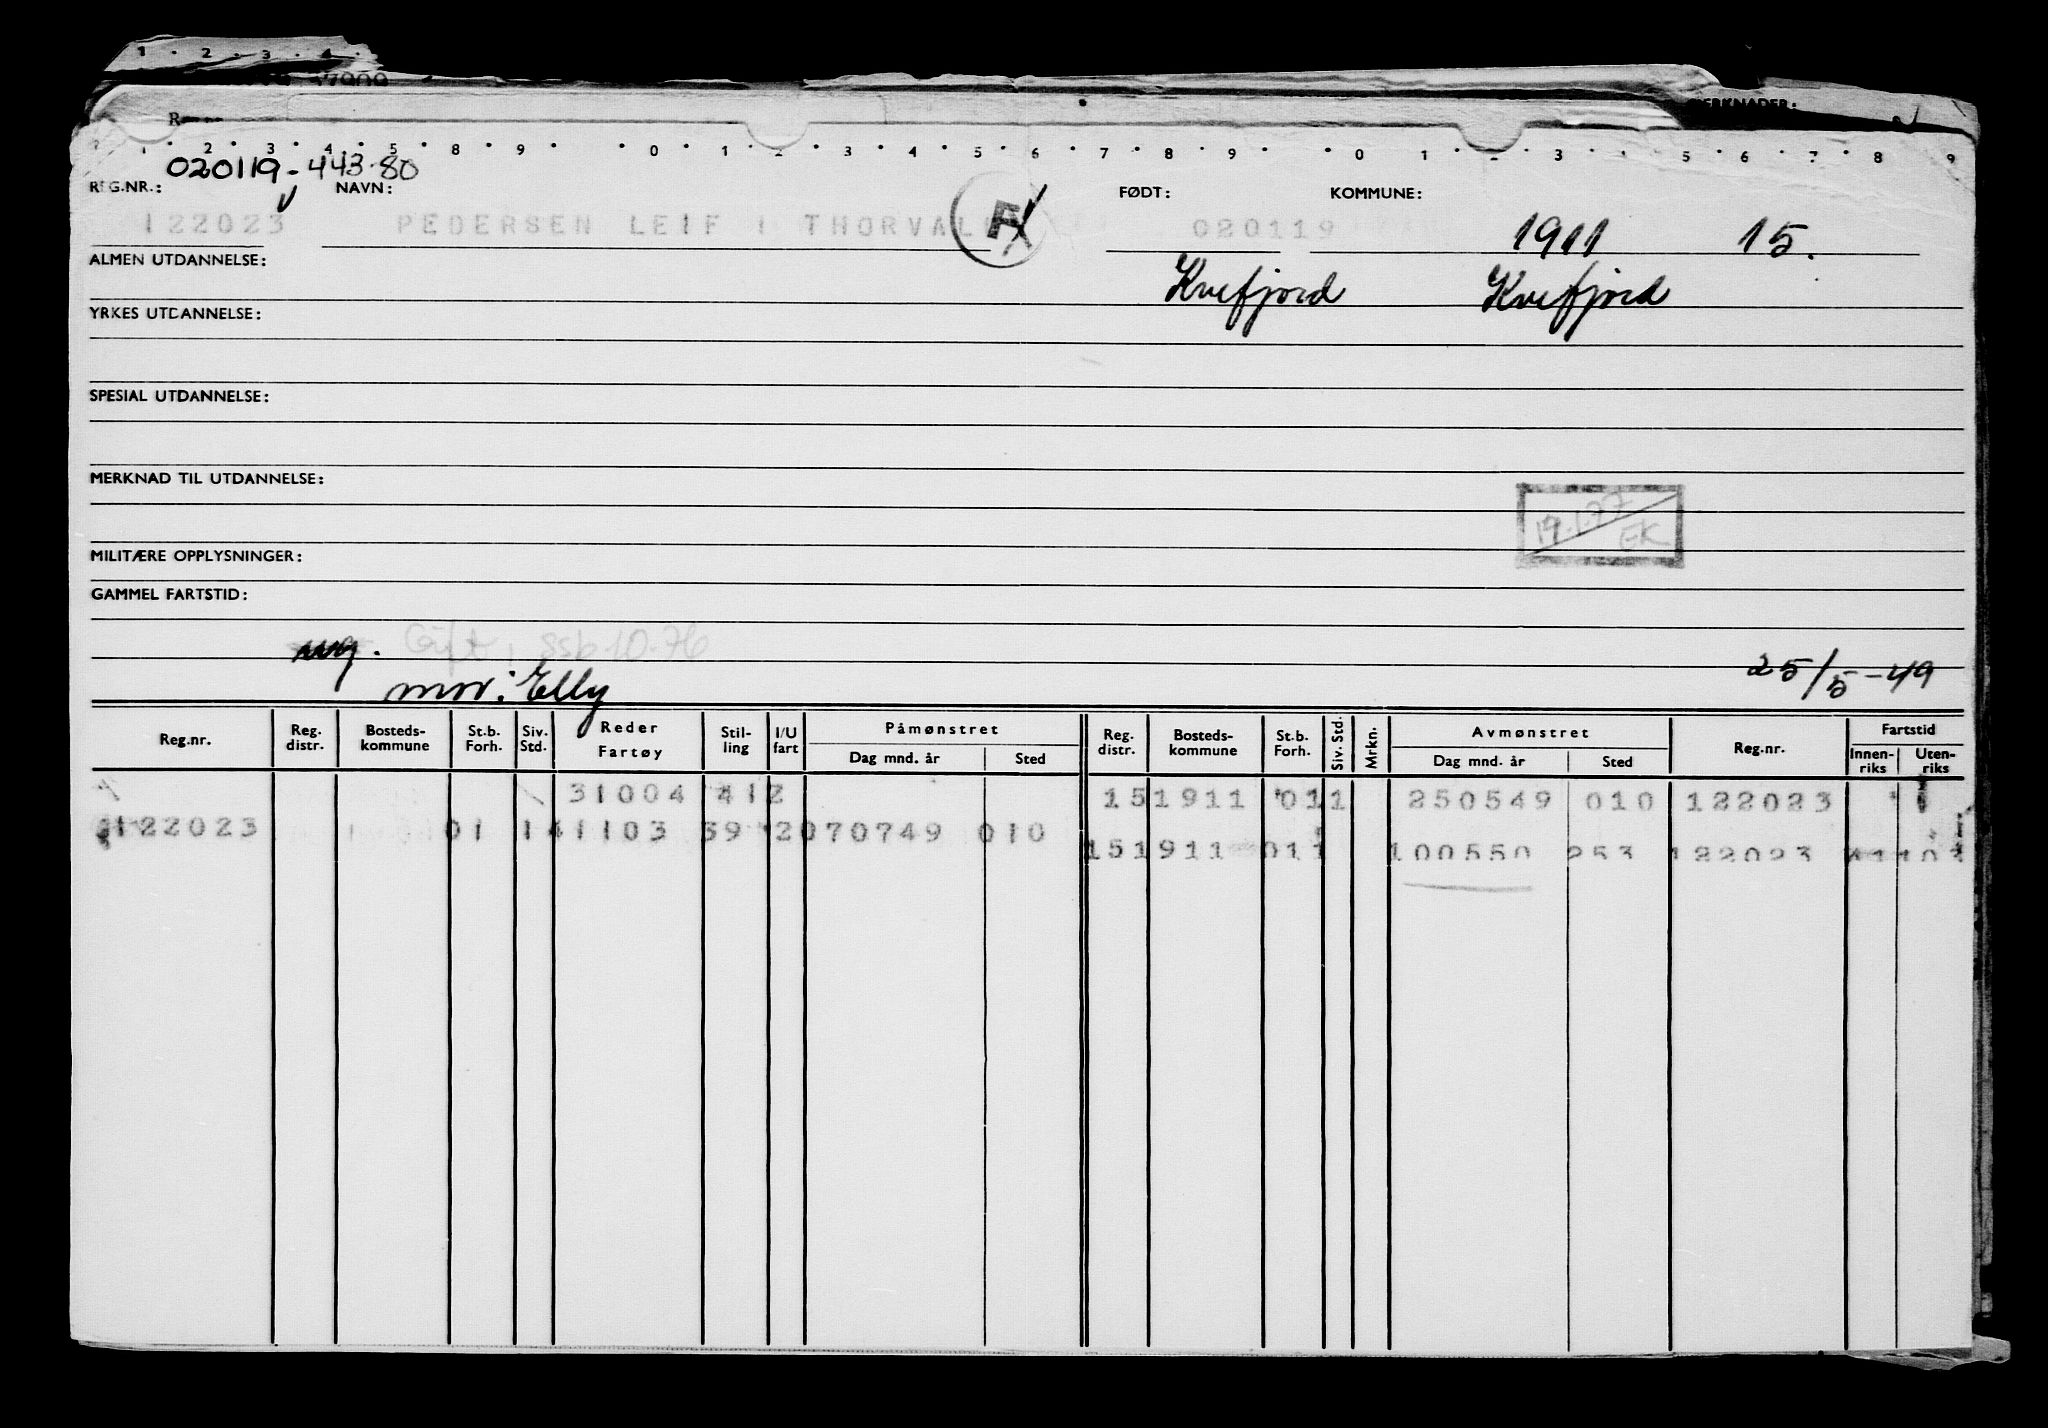 1 · 2 · 3 · 4 ·
37909
MERKNADER:
1 · 2 · 3 · 4 · 5 · 8 · 9 · · 0 · 1 · 2 · 3 · 4 · 5 · 6 · 7 · 8 · 9 · · 0 · 1 · 2 · 3 · 4 · 5 · 6 · 7 · 8 · 9
020119-443.80
REG.NR.: NAVN: FØDT: KOMMUNE:
122023 PEDERSEN LEIF I THORVAL F 020119 1911 15.
ALMEN UTDANNELSE: Kvefjord Kvefjord
YRKES UTDANNELSE:
SPESIAL UTDANNELSE:
MERKNAD TIL UTDANNELSE:
19.1.77
EK
MILITÆRE OPPLYSNINGER:
GAMMEL FARTSTID:
ug. Gift, ssb 10.76
mor: Elly 25/5-49
Reg.nr. Reg. distr. Bosteds-kommune St.b. Forh. Siv. Std. Reder Fartøy Stil-ling I/U fart Påmønstret Dag mnd. år Sted Reg. distr. Bosteds-kommune St.b. Forh. Siv. Std. Mrkn. Avmønstret Dag mnd. år Sted Reg.nr. Fartstid Innen-riks Uten-riks
31004 412 151911 011 250549 010 122023
122023 01 141103 59 2070749 010
151911 011 100550 253 122023 41103